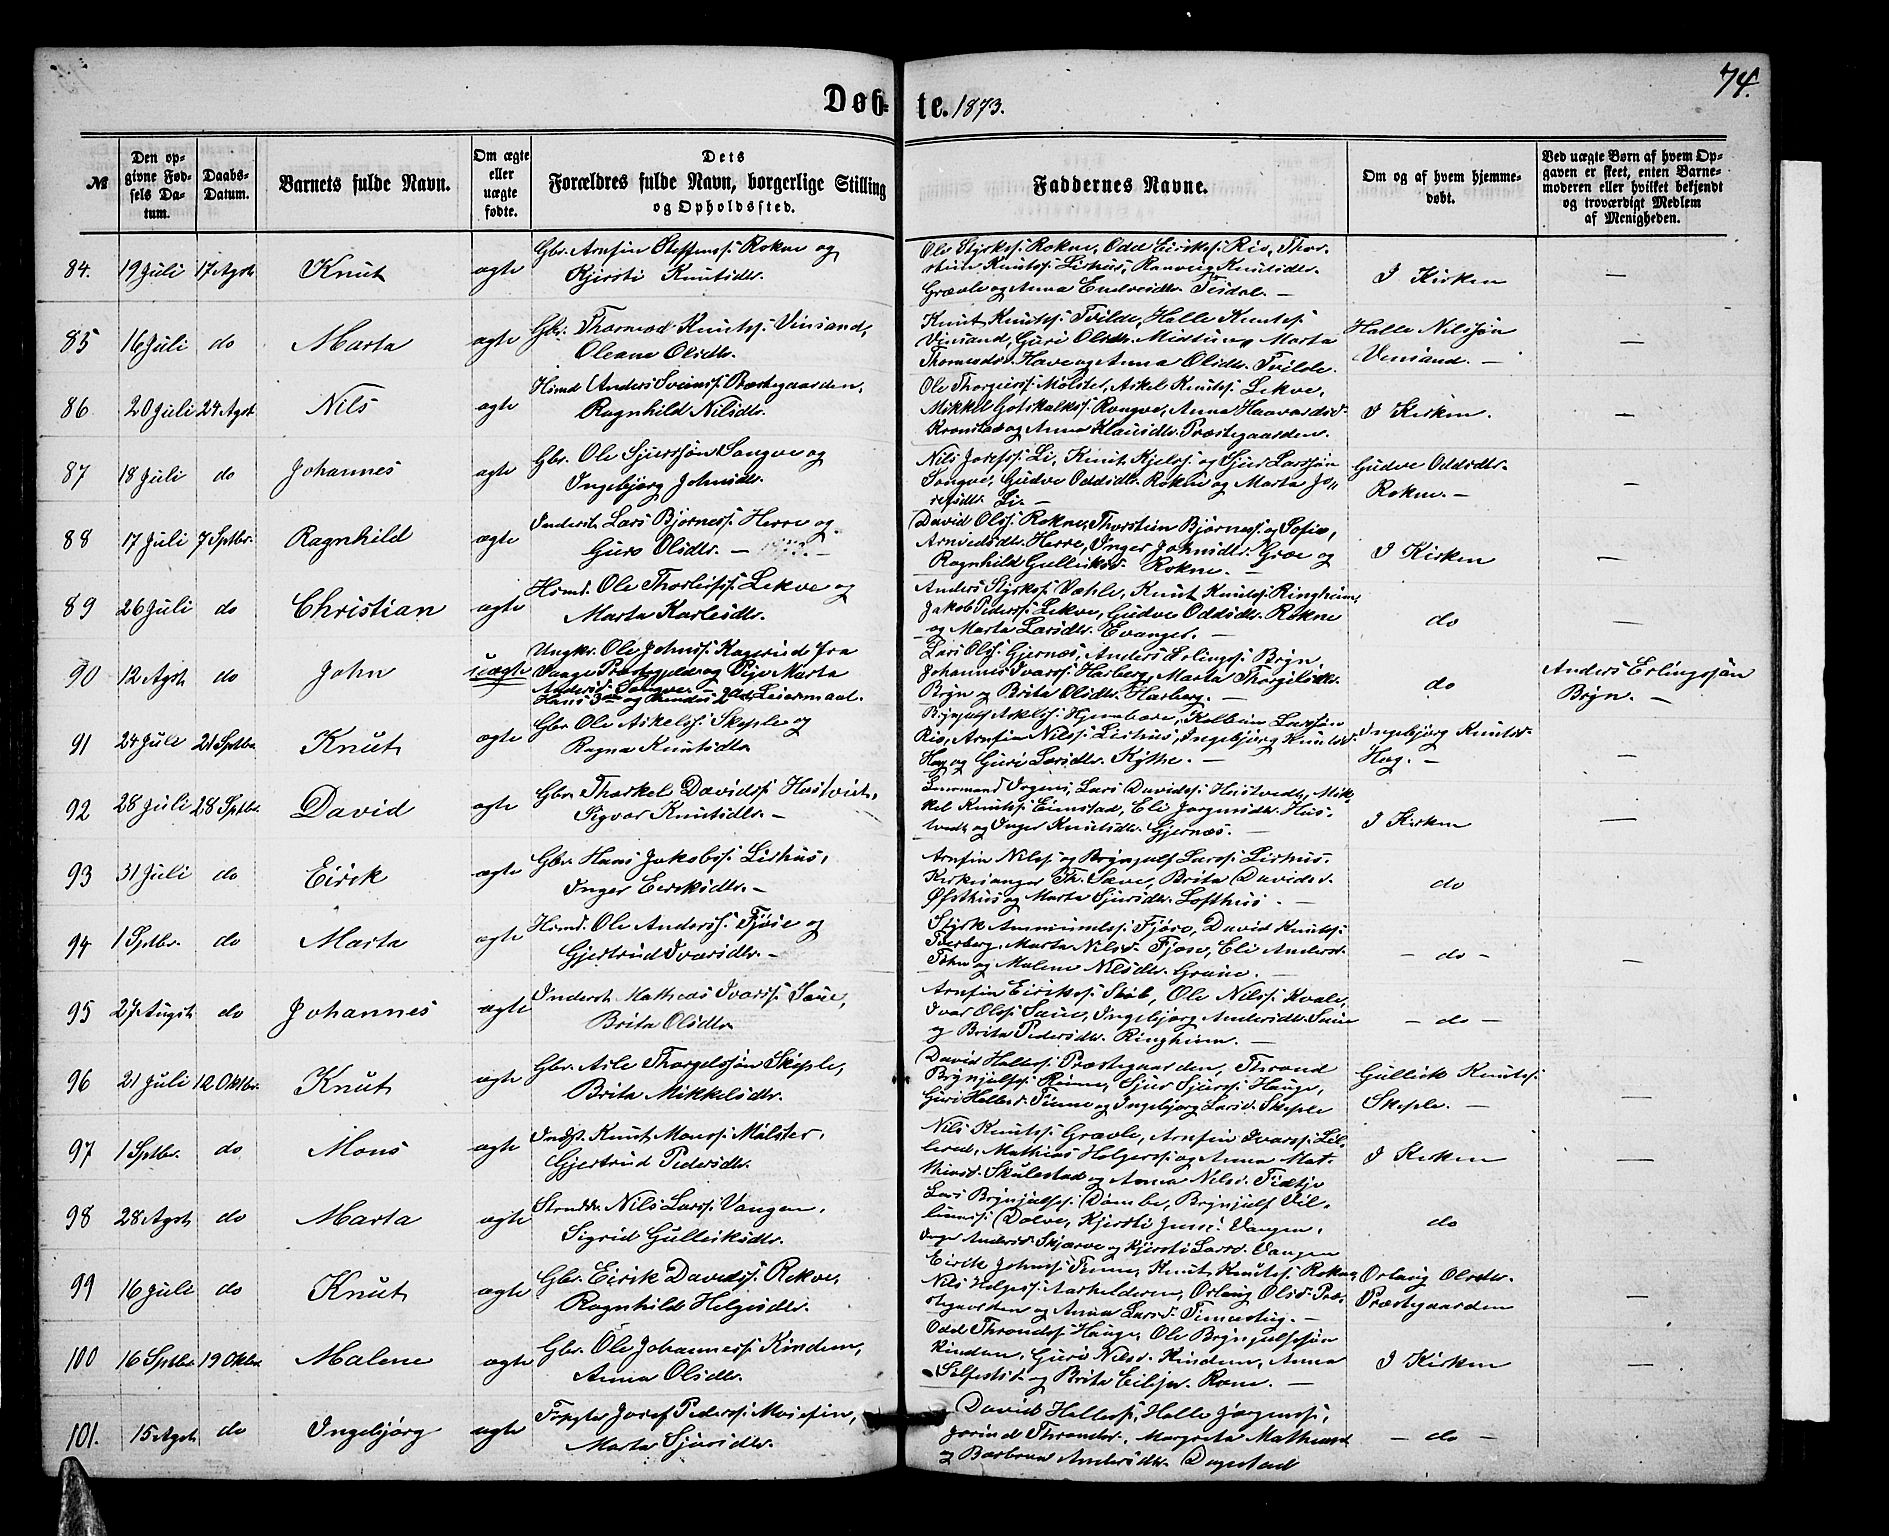 74.
Døb- te. 1873.
№ | Den opgivne Fødsels Datum. | Daabs-Datum. | Barnets fulde Navn. | Om ægte eller uægte fødte. | Dets Forældres fulde Navn, borgerlige Stilling og Opholdssted. | Faddernes Navne. | Om og af hvem hjemmedøbt. | Ved uægte Børn af hvem Opgaven er skeet, enten Barnemoderen eller hvilket bekjendt og troværdigt Medlem af Menigheden.
84. 19 Juli 17 Agst Knut ægte Gbr. Arnfin Steffenss: Rokne og
Kjersti Knutsdtr.
Ole Styrkss: Rokne, Odd Eirikss: Rio, Thor-
stein Knutss: Lirhus, Ranveig Knutsdtr.
Grævle og Anna Endreidtr. Tesdal. —
I Kirken —
85 16 Juli do Marta ægte Gbr. Thormod Knutss: Vinsand,
Oleane Olsdtr.
Knut Knutss: Tvilde, Halle Knutss:
Vinsand, Guri Olsdtr. Midtun, Marta
Thormodsdr. Have og Anna Olsdtr. Tvilde.
Halle Nilssøn
Vinsand. — —
86 20 Juli 24 Agst Nils ægte Hsmd Anders Sveinss: Præstegaarden,
Ragnhild Nilsdtr.
Ole Thorgierss: Mølster, Askel Knutss: Lekve,
Mikkel Gotskalkss: Rongve, Anna Haavardsd.
Kronstad og Anna Klausdtr. Præstegaarden.
I Kirken. —
87 18 Juli do Johannes ægte Gbr. Ole Sjurssøn Songve og
Ingebjørg Johnsdtr.
Nils Josefss: Li, Knut Kjelss: og Sjur Larssøn
Songve, Gudve Oddsdtr. Rokne og Marta Jo-
sefsdtr. Li. —
Gudve Oddsdtr.
Rokne. — —
88 17 Juli 7 Sptbr. Ragnhild ægte Inderst Lars Bjørness: Herre og
Guro Olsdtr. —
David Olss: Rokne, Thorstein Bjørness: og Sofie
Arnvedsdtr. Herre, Inger Johnsdtr. Græe og
Ragnhild Gulleiksd. Rokne. —
I Kirken —
89 26 Juli do Christian ægte Hsmd. Ole Thorleifss: Lekve og
Marta Karlsdtr.
Anders Styrkss: Væhle, Knut Knutss: Ringheim,
Jakob Pederss: Lekve, Gudve Oddsdtr. Rokne
og Marta Larsdtr. Evanger. —
do —
90 12 Agst do John uægte Ungkr. Ole Johnss: fra
Præstegjeld og Pige Marta
Andersd. Songve —
Hans 3die og Hendes 2det Leiermaal.
Lars Olss: Gjernæs, Anders Erlingss: Bryn,
Johannes Ivarss: Harberg, Marta Thorgilsdtr.
Bryn og Brita Olsdtr. Harberg. —
do
Anders Erlingssøn
Bryn. —
91 24 Juli 21 Sptbr. Knut ægte Gbr. Ole Askelss: Skjeple og
Ragna Knutsdtr
Brynjulf Askelss: , Kolbein Larssøn
Rio, Arnfin Nilss: Lirhus, Ingebjørg Knutsd.
Hæg og Guri Larsdtr. Kyte. —
Ingebjørg Knutsd.
Hæg. — —
92 28 Juli 28 Sptbr. David ægte Gbr. Thorkel Davidss: Hustvedt,
Sigvor Knutsdtr. —
Lensmand Irgens, Lars Davidss: Hustvedt, Mik-
kel Knutss: Eimstad, Eli Jørgensdtr. Hus-
tvedt og Inger Knutsdtr. Gjernæs. —
I Kirken —
93 31 Juli do Eirik ægte Gbr. Hans Jakobss: Lirhus,
Inger Eiriksdtr. —
Arnfin Nilss: og Brynjulf Larss: Lirhus.
Kirkesanger Th. Sæve, Brita Davidsd.
Østhus og Marta Sjursdtr. Lofthus. —
do —
94 1 Sptbr. do Marta ægte Hsmd. Ole Anderss: Fjøse og
Gjertrud Ivarsdtr. —
Styrk Ammundss: Fjøse, David Knutss:
, Marta Nilsd. Fjøse, Eli Andersd.
og Malene Nilsdtr. Graue. —
— do — —
95 27 Augst do Johannes ægte Inderst Mathias Ivarss: Saue,
Brita Olsdtr
Arnfin Eirikss: , Ole Nilss: Kvale,
Ivar Olss: Saue, Ingebjørg Andersdtr. Saue
og Brita Pedersdtr. Ringheim. —
— do — —
96 21 Juli 12 Oktbr. Knut ægte Gbr. Asle Thorgelssøn Skjeple,
Brita Mikkelsdtr.
David Halless: Præstegaarden, Thrond
Brynjulfss: Rene, Sjur Sjurss: Hauge,
Guri Hallesd. og Ingebjørg Larsd. Skjeple
Gulleik Knutss:
Skjeple. — —
97 1 Sptbr. do Mons ægte Indst. Knut Monss: Mølster,
Gjertrud Pedersdtr.
Nils Knutss: Grævle, Arnfin Ivarss: Lil-
lered, Mathias Holgerss: og Anna Mat-
thiasd. Skulestad og Anna Nilsd.
I Kirken —
98 28 Agst do Marta ægte Nils Larss: Vangen,
Sigrid Gulleiksdtr.
Lars Brynjulfss: Dømbe, Brynjulf Vil-
liamss: Dolve, Kjersti Jensd: Vangen,
Inger Andersd. Skjærve og Kjersti Larsd. Vangen
do
99 16 Juli do Knut ægte Gbr. Eirik Davidss: Rekve,
Ragnhild Helgesdtr.
Eirik Johnss: , Knut Knutss: Rokne,
Nils Helgess: , Orlaug Olsd. Præ-
stegaarden og Anna Larsd. —
Orlaug Olsdtr.
Præstegaarden —
100 16 Sptbr. 19 Oktbr. Malene ægte Gbr. Ole Johanness: Kindem,
Anna Olsdtr.
Odd Throndss: Hauge, Ole Brynjulfssøn
Kindem, Guri Nilsd. Kindem, Anna
Silfestsd. og Brita . —
I Kirken —
101. 15 Agst do Ingebjørg ægte Josef Pederss: ,
Marta Sjursdtr.
David Halless:, Halle Jørgenss:,
Throndsd., Margreta Mathiasd.
og Barbroe Andersdtr. Dagestad
— do — —